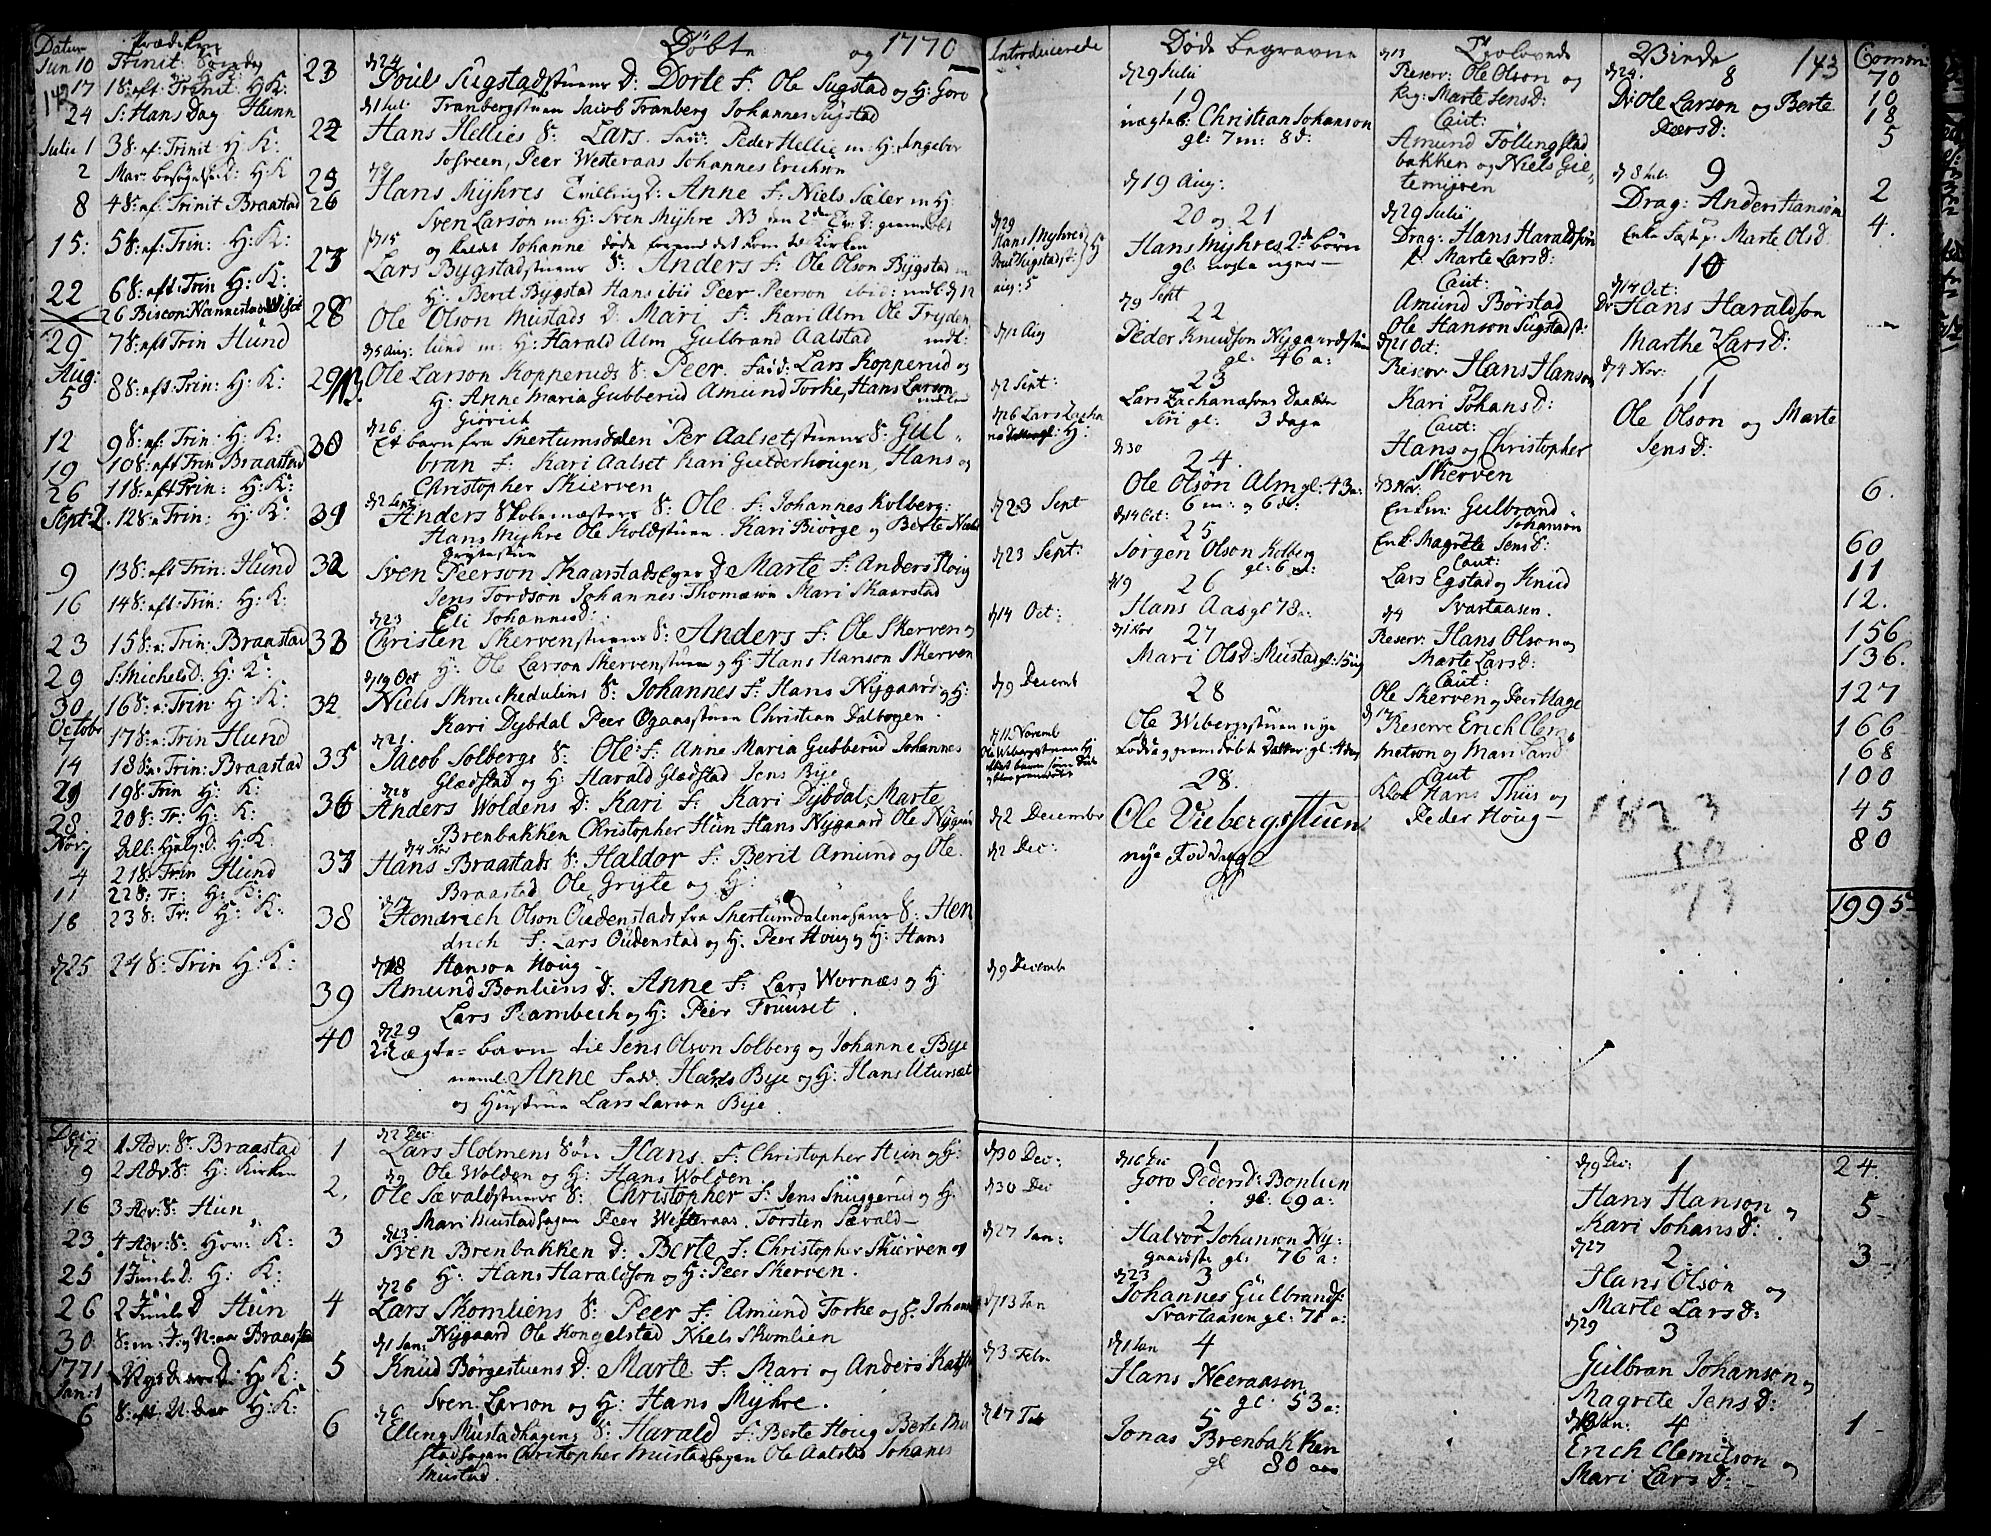 Døbte og 1770
Introducerede
Døde begravne
Trolovede
Viede 143
Jun 10 Trinit: Søndag
17 18: eft: Trinit H: K:
24 S: Hans Dag Hunn
Julii 1 38: ef: Trinit H: K:
2 Mar: besøgelse D: H: K
8 48: ef: Trinit Braastad
15: 58: ef: Trin: H: K:
22 68: eft: Trin H: K:
29 78: eft Trin Hund
Aug: 5 88: eft Trin: H: K:
12 98: ef: Trin: H: K:
19 108: eft Trin Braastad
26 118: eft Trin: H: K:
Sept: 2. 128: Trin: H: K:
9 138: eft Trin: Hund
16 148: eft: Trin: H: K:
23 158: Trin: Braastad
29 S: Michels D: H: K:
30 168: Trin H: K:
October 7 178: Trin Hund
14 188: Trin: Braastad
21 198: Trin H: K:
28 208: Tr: H: K:
Nov 1 All: Helg: D: H: K:
4 218: Trin Hund
11 228: Tr: H: K:
18 238: Tr: H: K:
d 25 248: Trin H: K:
23 Poul Sugstadstuens D: Dorte F: Ole Sugstad og H: Goro
Tranbergstuen Jacob Tranberg Johannes Sugstad
24 Hans Hellies S: Lars. Peder Hellie m: H: Ingebor
Josveen, Peer Westeraas Johannes Erichson
25 26 Hans Myhres Tvilling D: Anne F: Niels Sæler m: H:
Sven Larson m: H: Sven Myhre
og kaldt Johanne døde forend det kom til Kirken
27 Lars Bygstadstuens S: Anders F: Ole Olson Bygstad m
H: Berit Bygstad Hans ibii Peer Peerson ibid:
28 Ole Olson Mustads D: Mari F: Kari Alm Ole Tryden
lund m: H: Harald Alm Gulbrand Aalstad
29 Ole Larson Kopperuds S: Peer Fad: Lars Kopperud og
H: Anne Maria Gubberud Amund Torke, Hans Larson
30 Et barn fra Shertumsdalen Per Aalsetstuens S: Gul
bran F: Kari Aalset Kari Gulderhougen, Hans og
Christopher Skierven
31 Anders Skolemesters S: Ole F: Johannes Kolberg:
Hans Myhre Ole Koldstuen Kari Biørge og Berte
32 Sven Peerson Skaarstadseyer D Marte F: Anders Houg
Jens Tordson Johannes Thomæson Mari Skaarstad
Eli Johannesd:
33 Christen Skervenstuens S: Anders F: Ole Skerven og
H: Ole Larson Skervenstuen og H: Hans Hanson Skerven
34 Niels Skruckedulins S: Johannes F: Hans Nygaard og H:
Kari Dybdal Peer Ogaasstuen Christian Dalborgen.
35 Jacob Solbergs S: Ole F: Anne Maria Gubberud Johannes
Glædstad og H: Harald Glædstad Jens Bye
36 Anders Woldens D: Kari F: Kari Dybdal, Marte
Brenbakken Christopher Hun Hans Nygaard Ole Nygaar
37 Hans Braastads S: Haldor F: Berit Amund og Ole
Braastad Ole Gryte og H:
38 Hendrich Olson Oudenstads fra Shertumdalens S: Hen
drich F: Lars Oudenstad og H: Peer Houg og H: Hans
Hanson Houg
39 Amund Bonliens D: Anne F: Lars Wornæs og H
Lars Rambech og H: Peer Fruuset.
40 d 29
Uægte barn til Jens Olson Solberg og Johanne Bye
naml: Anne Fadd: Hans Bye og H: Hans Uturset
og Hustrue Lars Larson Bye
d 29
Hans Myhres
Aug: 5
d 12 Aug
d 2 Sept:
d 16 Lars Zacha
d 23 Sept
d 23 Sept:
d 14 Oct:
d 9 Decemb
d 11 Novemb
d 2 December
d 2 Dec:
d 9 Decemb
d 29 Julii
19
uægte: Christian Johanson
gl: 7 m: 8 d:
d 19 Aug:
20 og 21
Hans Myhres 2de børn
gl: nogle uger
d 9 Sept
22
Peder Knudson Nygaardstuen
gl: 46 a:
23
Lars Zachariæsons Daatter
Siri gl: 3 dage
d 30
24.
Ole Olsøn Alm gl: 43 a:
6 m: og 6 d:
d 14 Oct:
25
Jørgen Olson Kolberg
gl: 6
d 19 26
Hans Aas gl 78 a:
d 1 Nov 27
Mari Olsd: Mustad gl:
28
Ole Wibergsstuen nye
fødde grømdøbt Datter: gl: 4 dag
28.
Ole Viebergsstuen
nye Fød dag
d 13
Reserv: Ole Olson og
Pig: Marte Jensd:
Caut:
Amund Tøllingstad
bakken og Niels Gie
temyren
d 29 Julii
Drag: Hans Haraldsøn
p: Marte Larsd:
Caut:
Amund Børstad
Ole Hanson Sugstadst:
d 21 Oct:
Reserv Hans Hanson
Kari Johansd:
Caut:
Hans og Christopher
Skerven
d 3 Nov:
Enkm: Gulbrand
Johanson
Enk: Magrete Jensd:
Caut:
Lars Egstad og Knud
Svartaasen.
d 4
Reserv: Hans Olson og
Marte Larsd:
Caut:
Ole Skerven og Peer Hage
d 17 Reserve Erich Clem
metson og Mari Larsd
Caut
Klok Hans Thiis og
Peder Houg
d 24. 8
Dr: Ole Larson og Berte
Peersd:
d 8 Jul: 9
Drag: Anders Hanson
Enke Marte Olsd.
10
d 14 Oct:
Dr Hans Haraldson
Marthe Larsd:
d 4 Nov: 11
Ole Olson og Marte
Jensd:
1823
50
73
Comm:
70
10
18
5
2
4.
6.
60
11
12.
156
136.
127
166
68
100
45
80
1995
Dec: d 2 1 Adv: S: Braastad
9 2 Adv S: H: Kirken
16 3 Adv: S: Hun
23 4 Adv: S: Hov: K:
25 1 Juule D: H: K:
26 2 Juule D Hun
30 Braastad
1771 Jan: 1 Nyt aars D: H: K:
6 H: K:
1 Lars Holmens Søn Hans. F: Christopher Hun og H:
Ole Wolden og H: Hans Wolden
2. Ole Sævaldstuens S: Christopher F: Jens Snuggerud og H:
Mari Mustadhagen Peer Westeraas. Torsten Sævald
3 Sven Brenbakken D: Berte F: Christopher Skierven og
H: Hans Haraldson og H: Peer Skerven.
d 26
4 Lars Skomliens S: Peer F: Amund Torke og H: Johan
Nygaard Ole Kongelstad Niels Skomlien
d 1 Jan:
5 Knud Børgestuens D: Marte F: Mari og Anders
Sven Larson og H: Hans Myhre.
d 6
6 Elling Mustadhagens S: Harald F: Berte Houg Berte Mu
stadhagen Christopher Mustadhagen Ole Aalstad Johanes
Mustad.
d 30 Dec:
d 30 Dec
d 27 Jan:
d 13 Jan
d 3 Febr
d 17 Feb
d 16 Dec 1
Goro Pedersd: Bonlien
gl: 69 a:
2
Halvor Johanson Ny
gaardst: gl: 76 a:
d 23 3
Johannes Gulbrands:
Svartaasen gl: 71 a:
d 1 Jan 4
Hans Neeraasen
gl: 53 a:
5
Jonas Brenbakken
gl 80 aar
d 9 Dec: 1
Hans Hanson og
Kari Johansd:
d 27 2.
Hans Olsøn og
Marte Larsd:
d 29 3
Gulbran Johanson og
Magrete Jensd:
Jan: 4
Erich Clemitson og
Mari Larsd:
24.
5
3
1